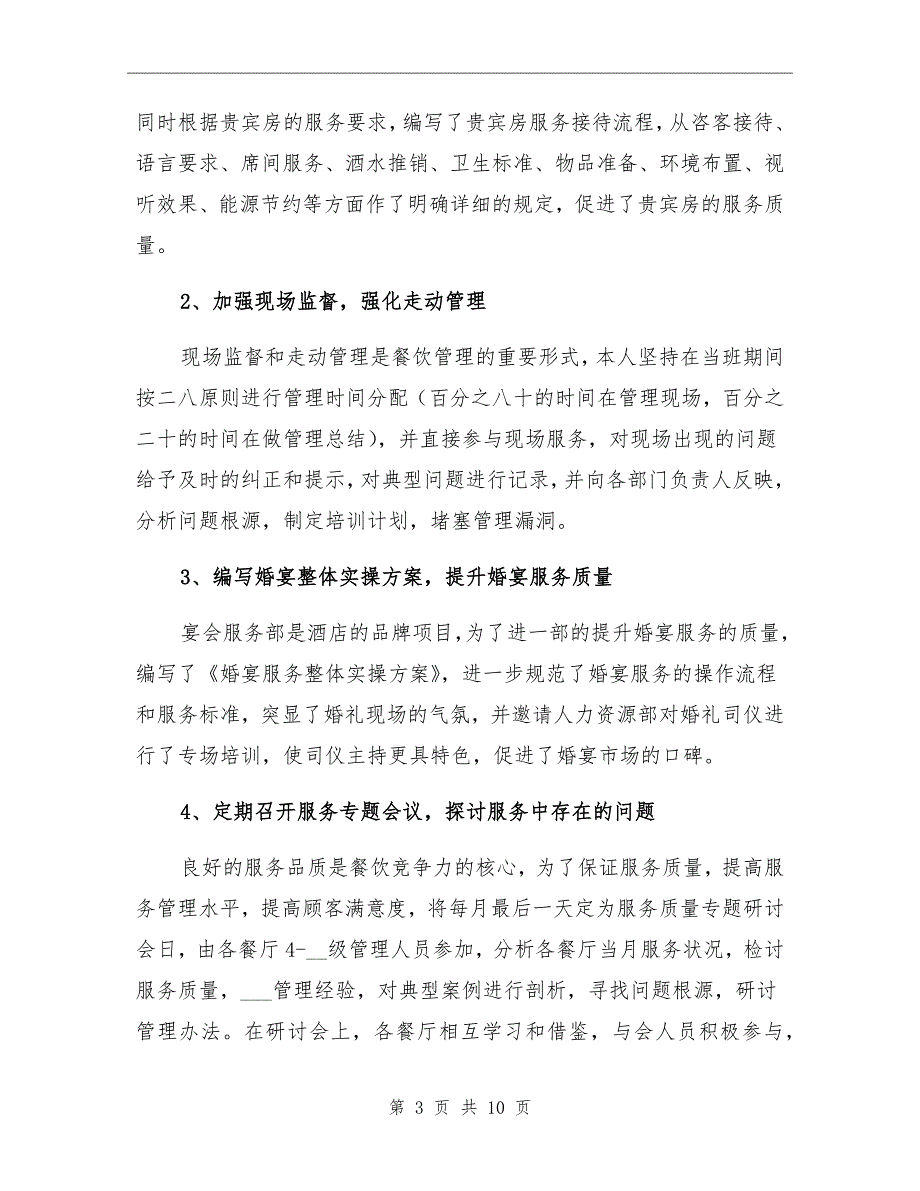 同时根据贵宾房的服务要求，编写了贵宾房服务接待流程，从咨客接待、
语言要求、席间服务、酒水推销、卫生标准、物品准备、环境布置、视
听效果、能源节约等方面作了明确详细的规定，促进了贵宾房的服务质
量。
2、加强现场监督，强化走动管理
现场监督和走动管理是餐饮管理的重要形式，本人坚持在当班期间
按二八原则进行管理时间分配（百分之八十的时间在管理现场，百分之
二十的时间在做管理总结），并直接参与现场服务，对现场出现的问题
给予及时的纠正和提示，对典型问题进行记录，并向各部门负责人反映，
分析问题根源，制定培训计划，堵塞管理漏洞。
3、编写婚宴整体实操方案，提升婚宴服务质量
宴会服务部是酒店的品牌项目，为了进一部的提升婚宴服务的质量，
编写了《婚宴服务整体实操方案》，进一步规范了婚宴服务的操作流程
和服务标准，突显了婚礼现场的气氛，并邀请人力资源部对婚礼司仪进
行了专场培训，使司仪主持更具特色，促进了婚宴市场的口碑。
4、定期召开服务专题会议，探讨服务中存在的问题
良好的服务品质是餐饮竞争力的核心，为了保证服务质量，提高服
务管理水平，提高顾客满意度，将每月最后一天定为服务质量专题研讨
会日，由各餐厅 4-__级管理人员参加，分析各餐厅当月服务状况，检讨
服务质量，___管理经验，对典型案例进行剖析，寻找问题根源，研讨
管理办法。在研讨会上，各餐厅相互学习和借鉴，与会人员积极参与，
第 3 页 共 10 页